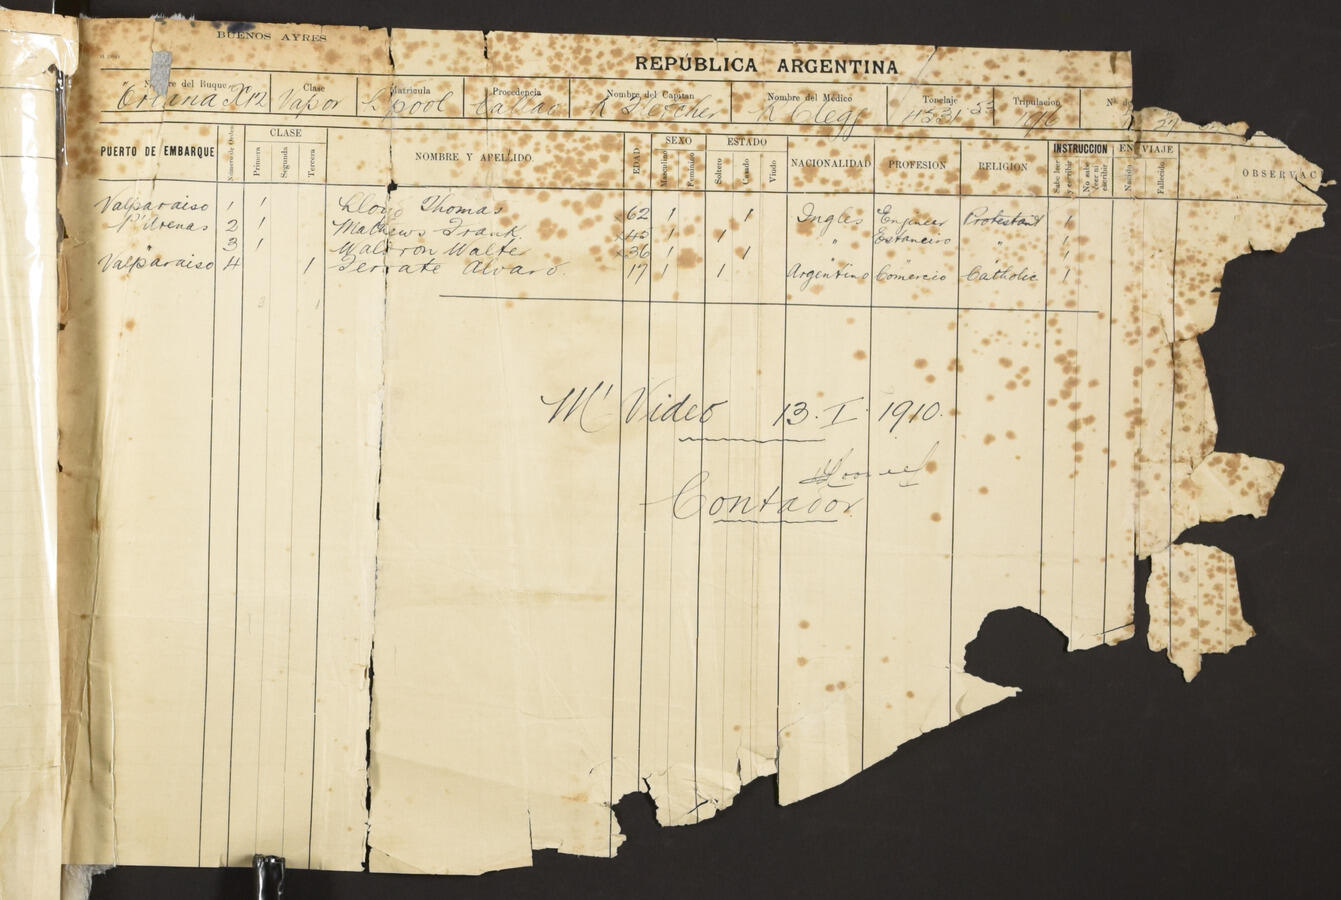 BUENOS AYRES
REPÚBLICA ARGENTINA
Nombre del Buque Clase Matricula Procedencia Nombre del Capitan Nombre del Médico Tonelaje Tripulacion Nº
Oriana X12 Vapor L'pool Callao Fletcher Clegg 4531.53
PUERTO DE EMBARQUE Número de Orden CLASE NOMBRE Y APELLIDO. EDAD SEXO ESTADO NACIONALIDAD PROFESION RELIGION INSTRUCCION EN VIAJE OBSERVAC
Primera Segunda Tercera Masculino Femenino Soltero Casado Viudo Sabe leer y escribir No sabe leer ni escribir Nacido Fallecido
Valparaiso 1 1 Lloyd Thomas 62 1 1 Ingles Engineer Protestant 1
P. Arenas 2 1 Mathews Frank 42 1 1 " Estanciero " 1
" 3 1 Waldron Walter 36 1 1 " " " 1
Valparaiso 4 1 Serrate Alvaro. 17 1 1 Argentino Comercio Catholic 1
3 1
M' Video 13. I. 1910.
Contador